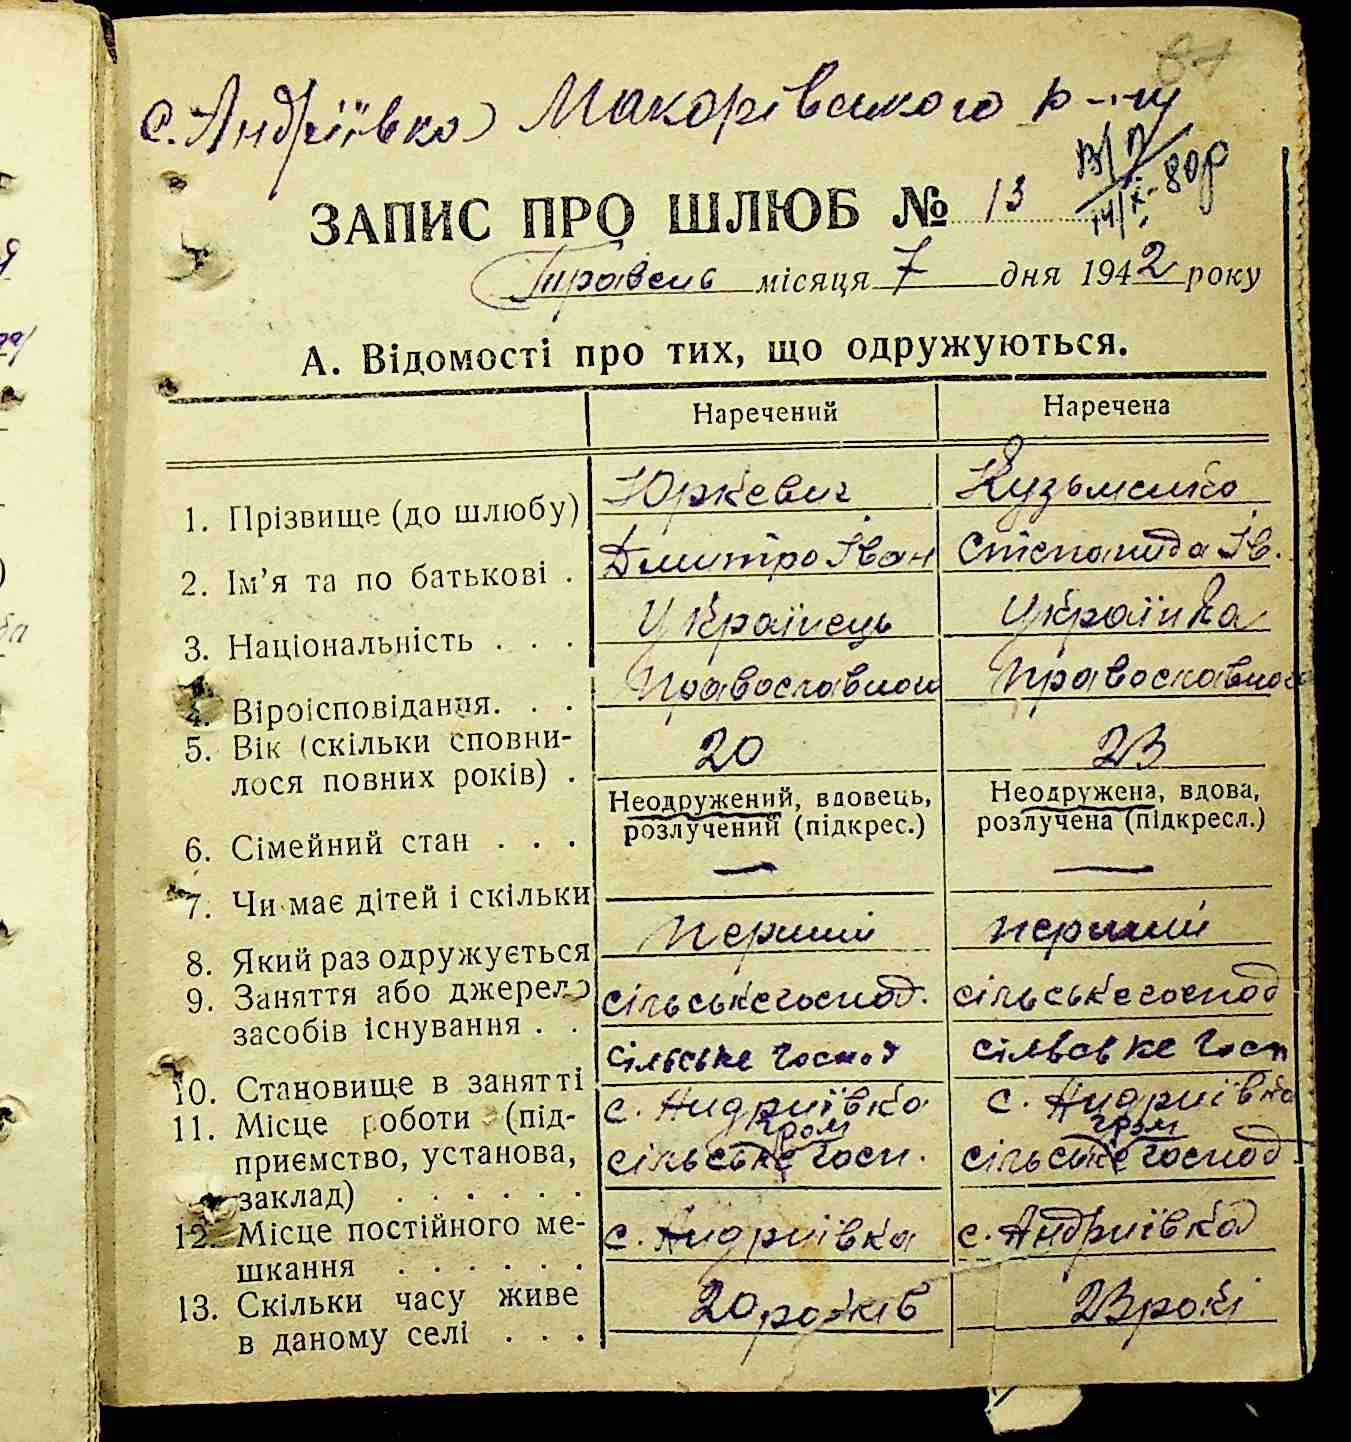 81
с. Андріївка Макарівського р-ну
ЗАПИС ПРО ШЛЮБ № 13
14/X-80р
Травень місяця 7 дня 1942 року
А. Відомості про тих, що одружуються.
Наречений Наречена
1. Прізвище (до шлюбу) Юркевич Кузьменко
2. Ім'я та по батькові . Дмитро Іван Степанида Ів.
3. Національність . . . Українець Українка
4. Віроісповідання. . . Православної Православної
5. Вік (скільки сповни-
лося повних років) . 20 23
Неодружений, вдовець, Неодружена, вдова,
розлучений (підкрес.) розлучена (підкресл.)
6. Сімейний стан . . .
7. Чи має дітей і скільки — —
8. Який раз одружується перший перший
9. Заняття або джерело
засобів існування . . сільське господ. сільське господ
10. Становище в занятті сільське господ сільське госп
11. Місце роботи (під- с. Андриївка с. Андриївка
гром гром
приємство, установа, сільське госп. сільське господ
заклад) . . . . . .
12. Місце постійного ме-
шкання . . . . . . с. Андриївка с. Андриївка
13. Скільки часу живе
в даному селі . . . 20 років 23 рокі